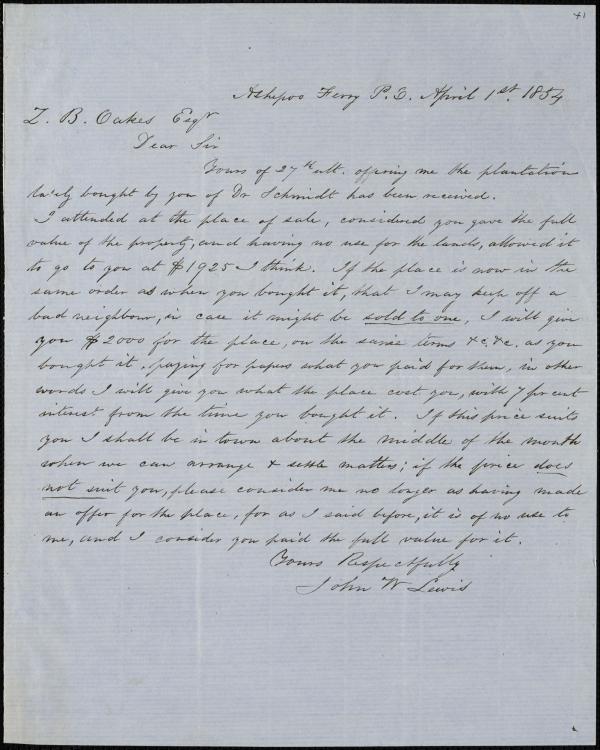 41
Ashepoo Ferry P.O. April 1st. 1854
Z. B. Oakes Esqr
Dear Sir
Yours of 27th ult. offering me the plantation
lately bought by you of Dr Schmidt has been received.
I attended at the place of sale, considered you gave the full
value of the property, and having no use for the lands, allowed it
to go to you at $1925 I think. If the place is now in the
same order as when you bought it, that I may keep off a
bad neighbour, in case it might be sold to one, I will give
you $2000 for the place, on the same terms &c. &c. as you
bought it, paying for papers what you paid for them, in other
words I will give you what the place cost you, with 7 per cent
interest from the time you bought it. If this price suits
you I shall be in town about the middle of the month
when we can arrange & settle matters; if the price does
not suit you, please consider me no longer as having made
an offer for the place, for as I said before, it is of no use to
me, and I consider you paid the full value for it.
Yours Respectfully
John W Lewis